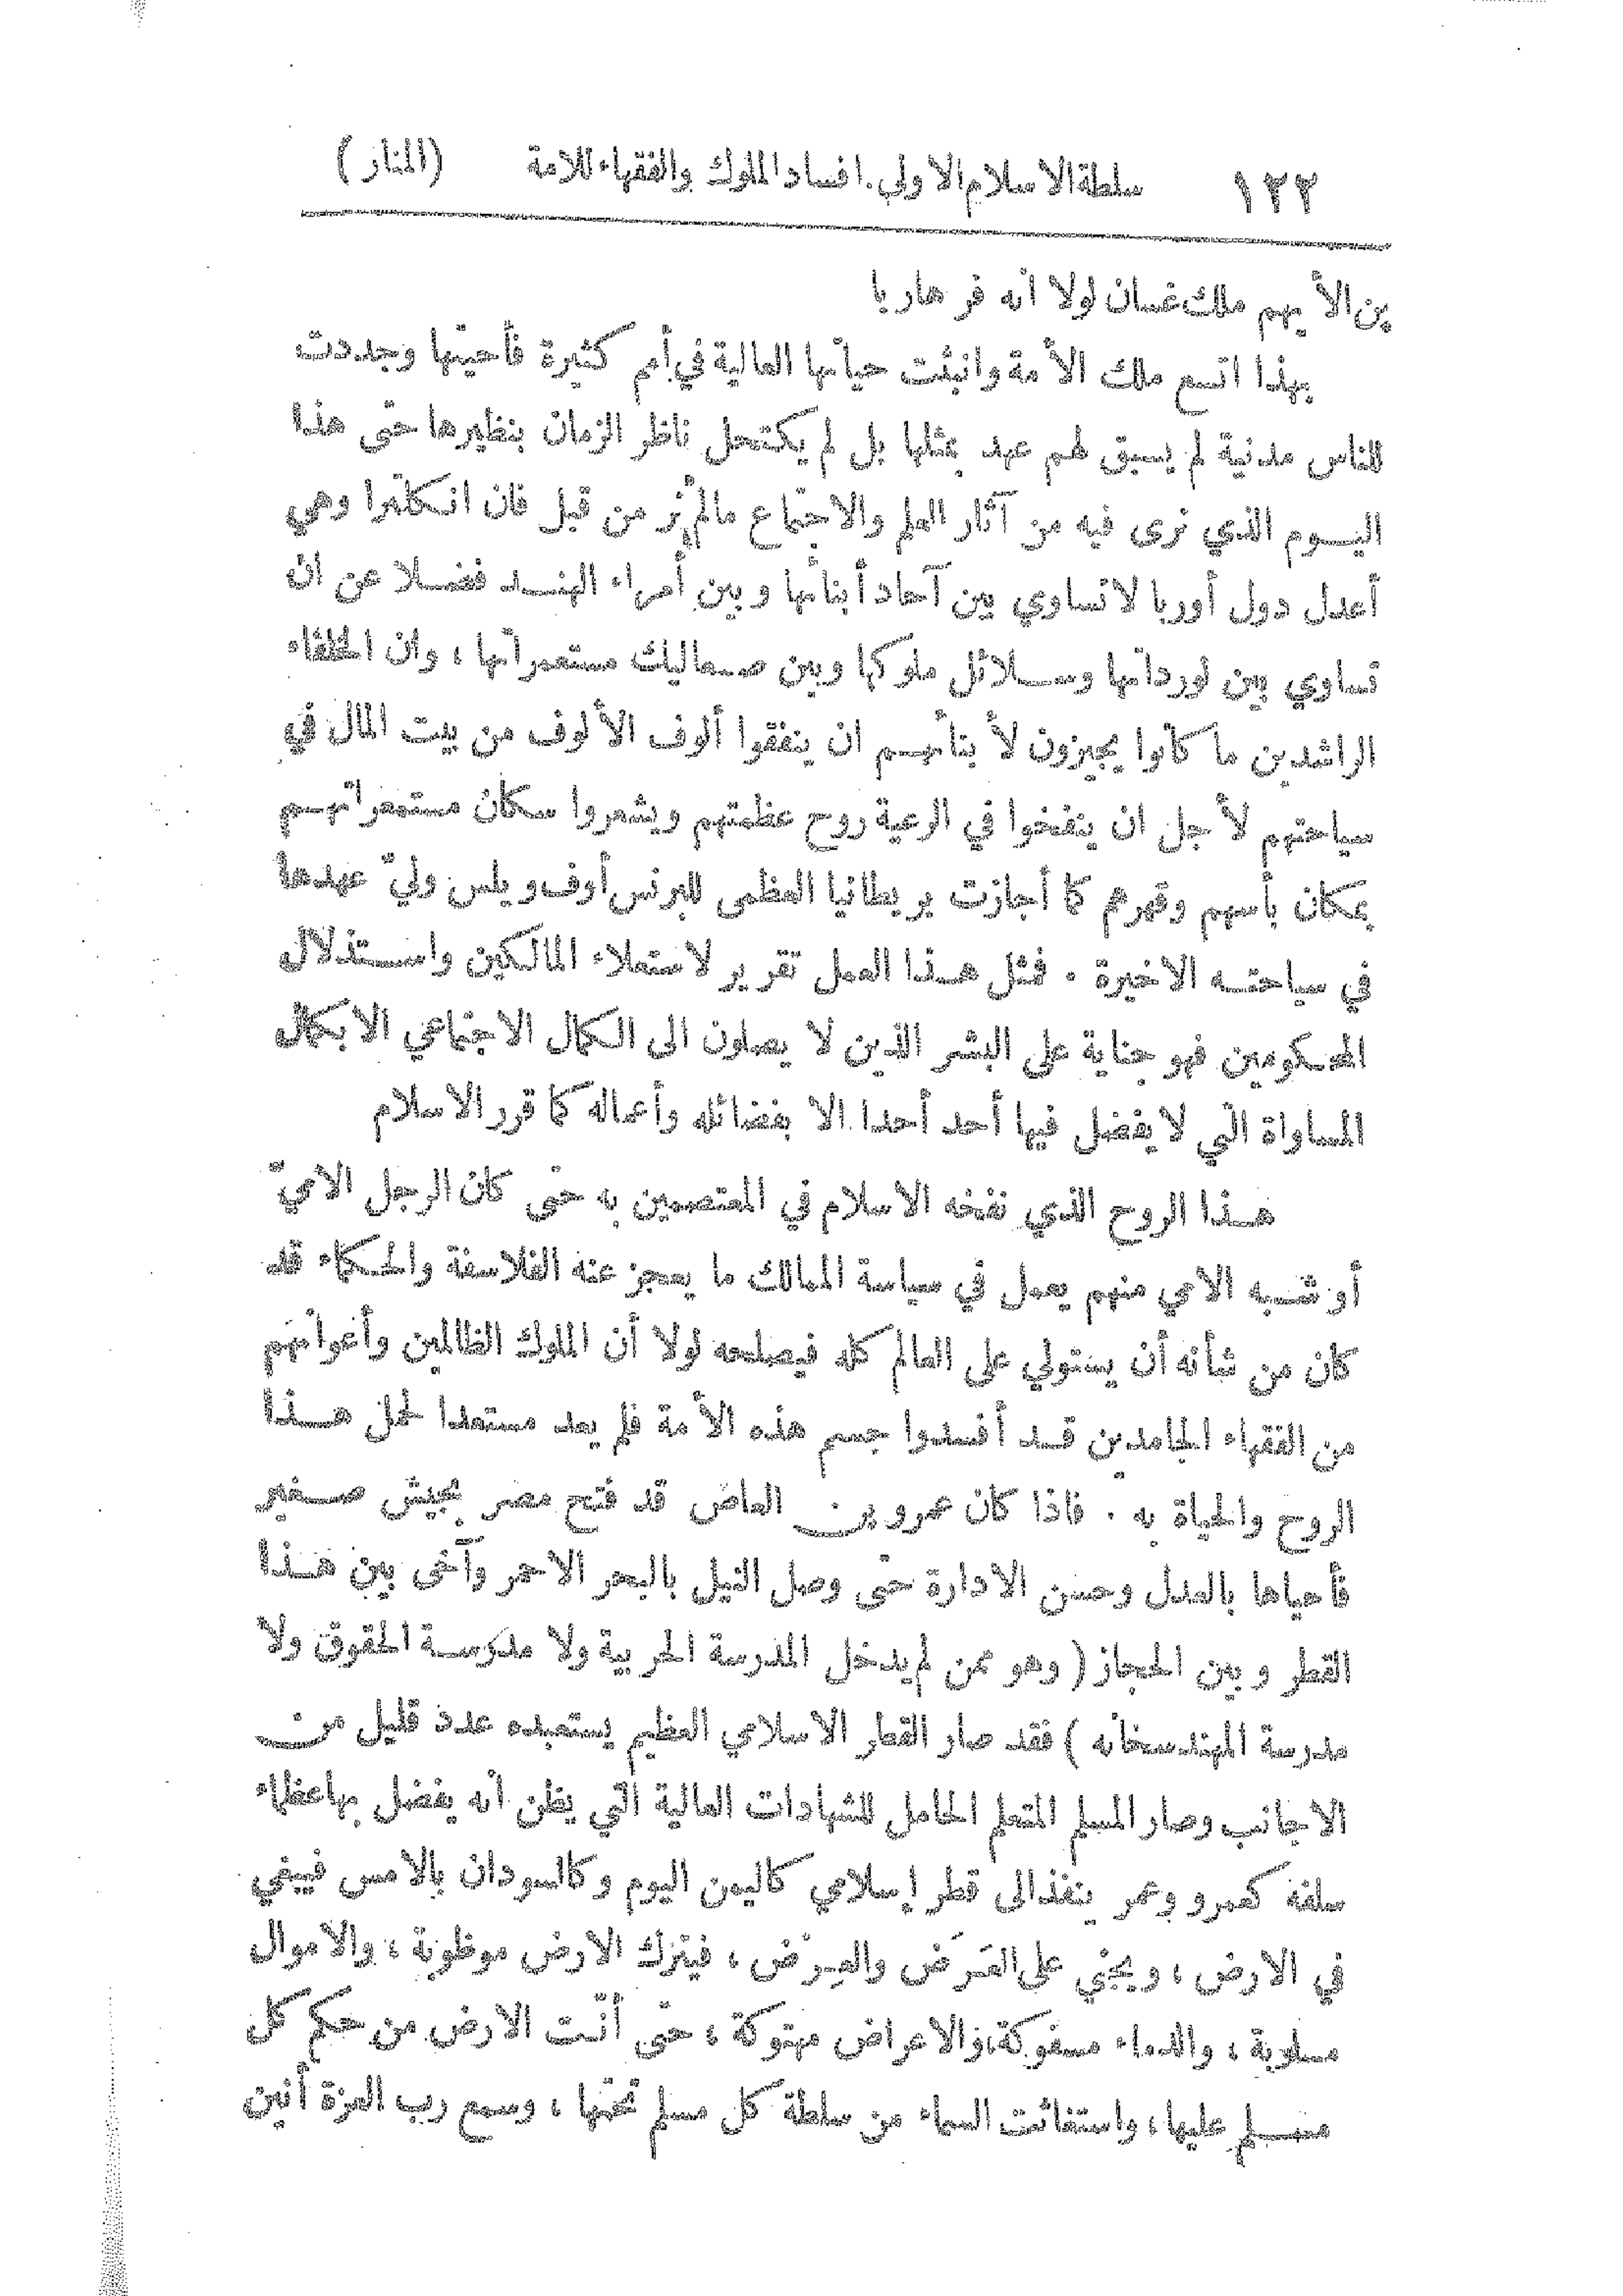 ١٢٢ سلطة الاسلام الاولى. افساد الملوك والفقهاء للامة (المنار)
بن الأيهم ملك غسان لولا أنه فر هاربا
بهذا اتسع ملك الأمة وانبثت حياتها العالية في أمم كثيرة فأحيتها وجددت
للناس مدنية لم يسبق لهم عهد بمثلها بل لم يكتحل ناظر الزمان بنظيرها حتى هذا
اليوم الذي نرى فيه من آثار العلم والاجتماع مالم يُرَ من قبل فان انكلترا وهي
أعدل دول أوربا لا تساوي بين آحاد أبنائها وبين أمراء الهند فضلا عن ان
تساوي بين لورداتها وسلائل ملوكها وبين صعاليك مستعمراتها ، وان الخلفاء
الراشدين ما كانوا يجيزون لأبنائهم ان ينفقوا ألوف الألوف من بيت المال في
سياحتهم لأجل ان ينفخوا في الرعية روح عظمتهم ويشعروا سكان مستعمراتهم
بمكان بأسهم وقهرهم كما أجازت بريطانيا العظمى للبرنس أوف ويلس وليّ عهدها
في سياحته الاخيرة . فمثل هذا العمل تقرير لاستعلاء المالكين واستذلال
المحكومين فهو جناية على البشر الذين لا يصلون الى الكمال الاجتماعي الا بكمال
المساواة التي لا يفضل فيها أحد أحدا الا بفضائله وأعماله كما قرر الاسلام
هذا الروح الذي نفخه الاسلام في المعتصمين به حتى كان الرجل الاميّ
أو شبه الامي منهم يعمل في سياسة الممالك ما يعجز عنه الفلاسفة والحكماء قد
كان من شأنه أن يستولي على العالم كله فيصلحه لولا أن الملوك الظالمين وأعوانهم
من الفقهاء الجامدين قد أفسدوا جسم هذه الأمة فلم يعد مستعدا لحمل هذا
الروح والحياة به . فاذا كان عمرو بن العاص قد فتح مصر بجيش صغير
فأحياها بالعدل وحسن الادارة حتى وصل النيل بالبحر الاحمر وآخى بين هذا
القطر وبين الحجاز ( وهو ممن لم يدخل المدرسة الحربية ولا مدرسة الحقوق ولا
مدرسة المهندسخانه ) فقد صار القطر الاسلامي العظيم يستعبده عدد قليل من
الاجانب وصار المسلم المتعلم الحامل للشهادات العالية التي يظن أنه يفضل بها عظماء
سلفه كعمرو وعمر ينفذ الى قطر إسلامي كاليمن اليوم وكالسودان بالامس فيبغي
في الارض ، ويجني على العَرَض والعِرْض ، فيترك الارض موظوبة ، والاموال
مسلوبة ، والدماء مسفوكة، والاعراض مهتوكة ، حتى أنّت الارض من حكم كل
مسلم عليها ، واستغاثت السماء من سلطة كل مسلم تحتها ، وسمع رب العزة أنين